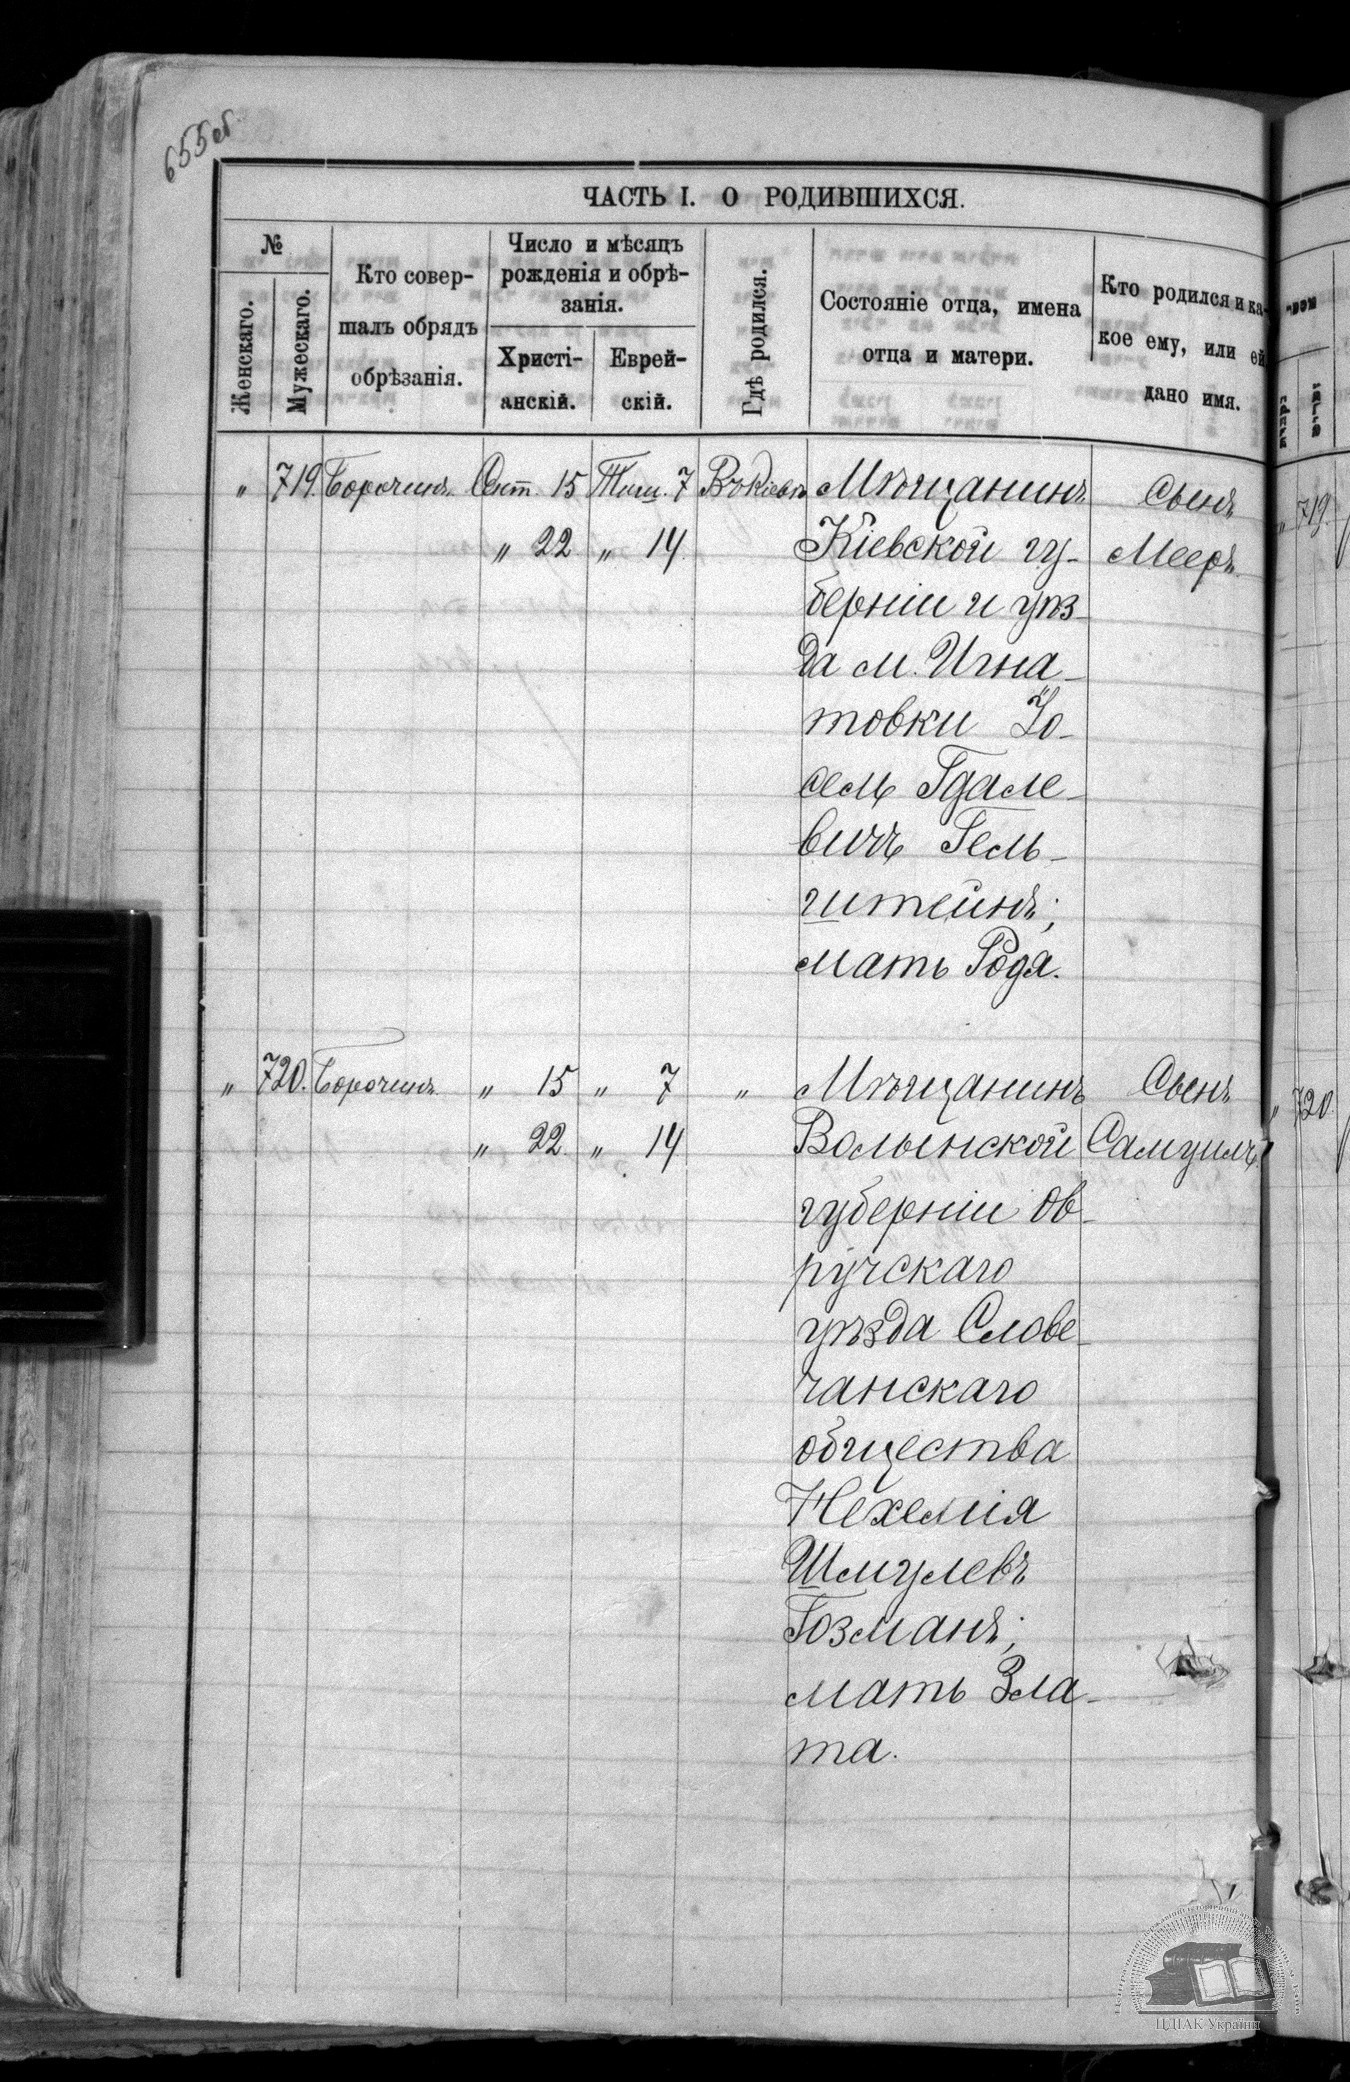 655об
ЧАСТЬ I. О РОДИВШИХСЯ.
№
Женскаго.
Мужескаго.
Кто совер-
шалъ обрядъ
обрѣзанія.
Число и мѣсяцъ
рожденія и обрѣ-
занія.
Христі-
анскій.
Еврей-
скій.
Гдѣ родился.
Состояніе отца, имена
отца и матери.
Кто родился и ка-
кое ему, или ей
дано имя.
„ 719. Борочинъ. Окт. 15 Тиш. 7 Въ Кіевѣ Мѣщанинъ Сынъ
„ 22 „ 14 Кіевской гу- Мееръ.
берніи и уѣз-
да м. Игна-
товки Іо-
сель Гдале-
вичъ Гель-
штейнъ;
мать Годя.
„ 720. Борочинъ. „ 15 „ 7 „ Мѣщанинъ Сынъ
„ 22. „ 14 Волынской Самуилъ.
губерніи Ов-
ручскаго
уѣзда Слове-
чанскаго
общества
Нехемія
Шмулевъ
Гозманъ;
мать Зла-
та.
„ 719.
„ 720.
ЦДІАК України